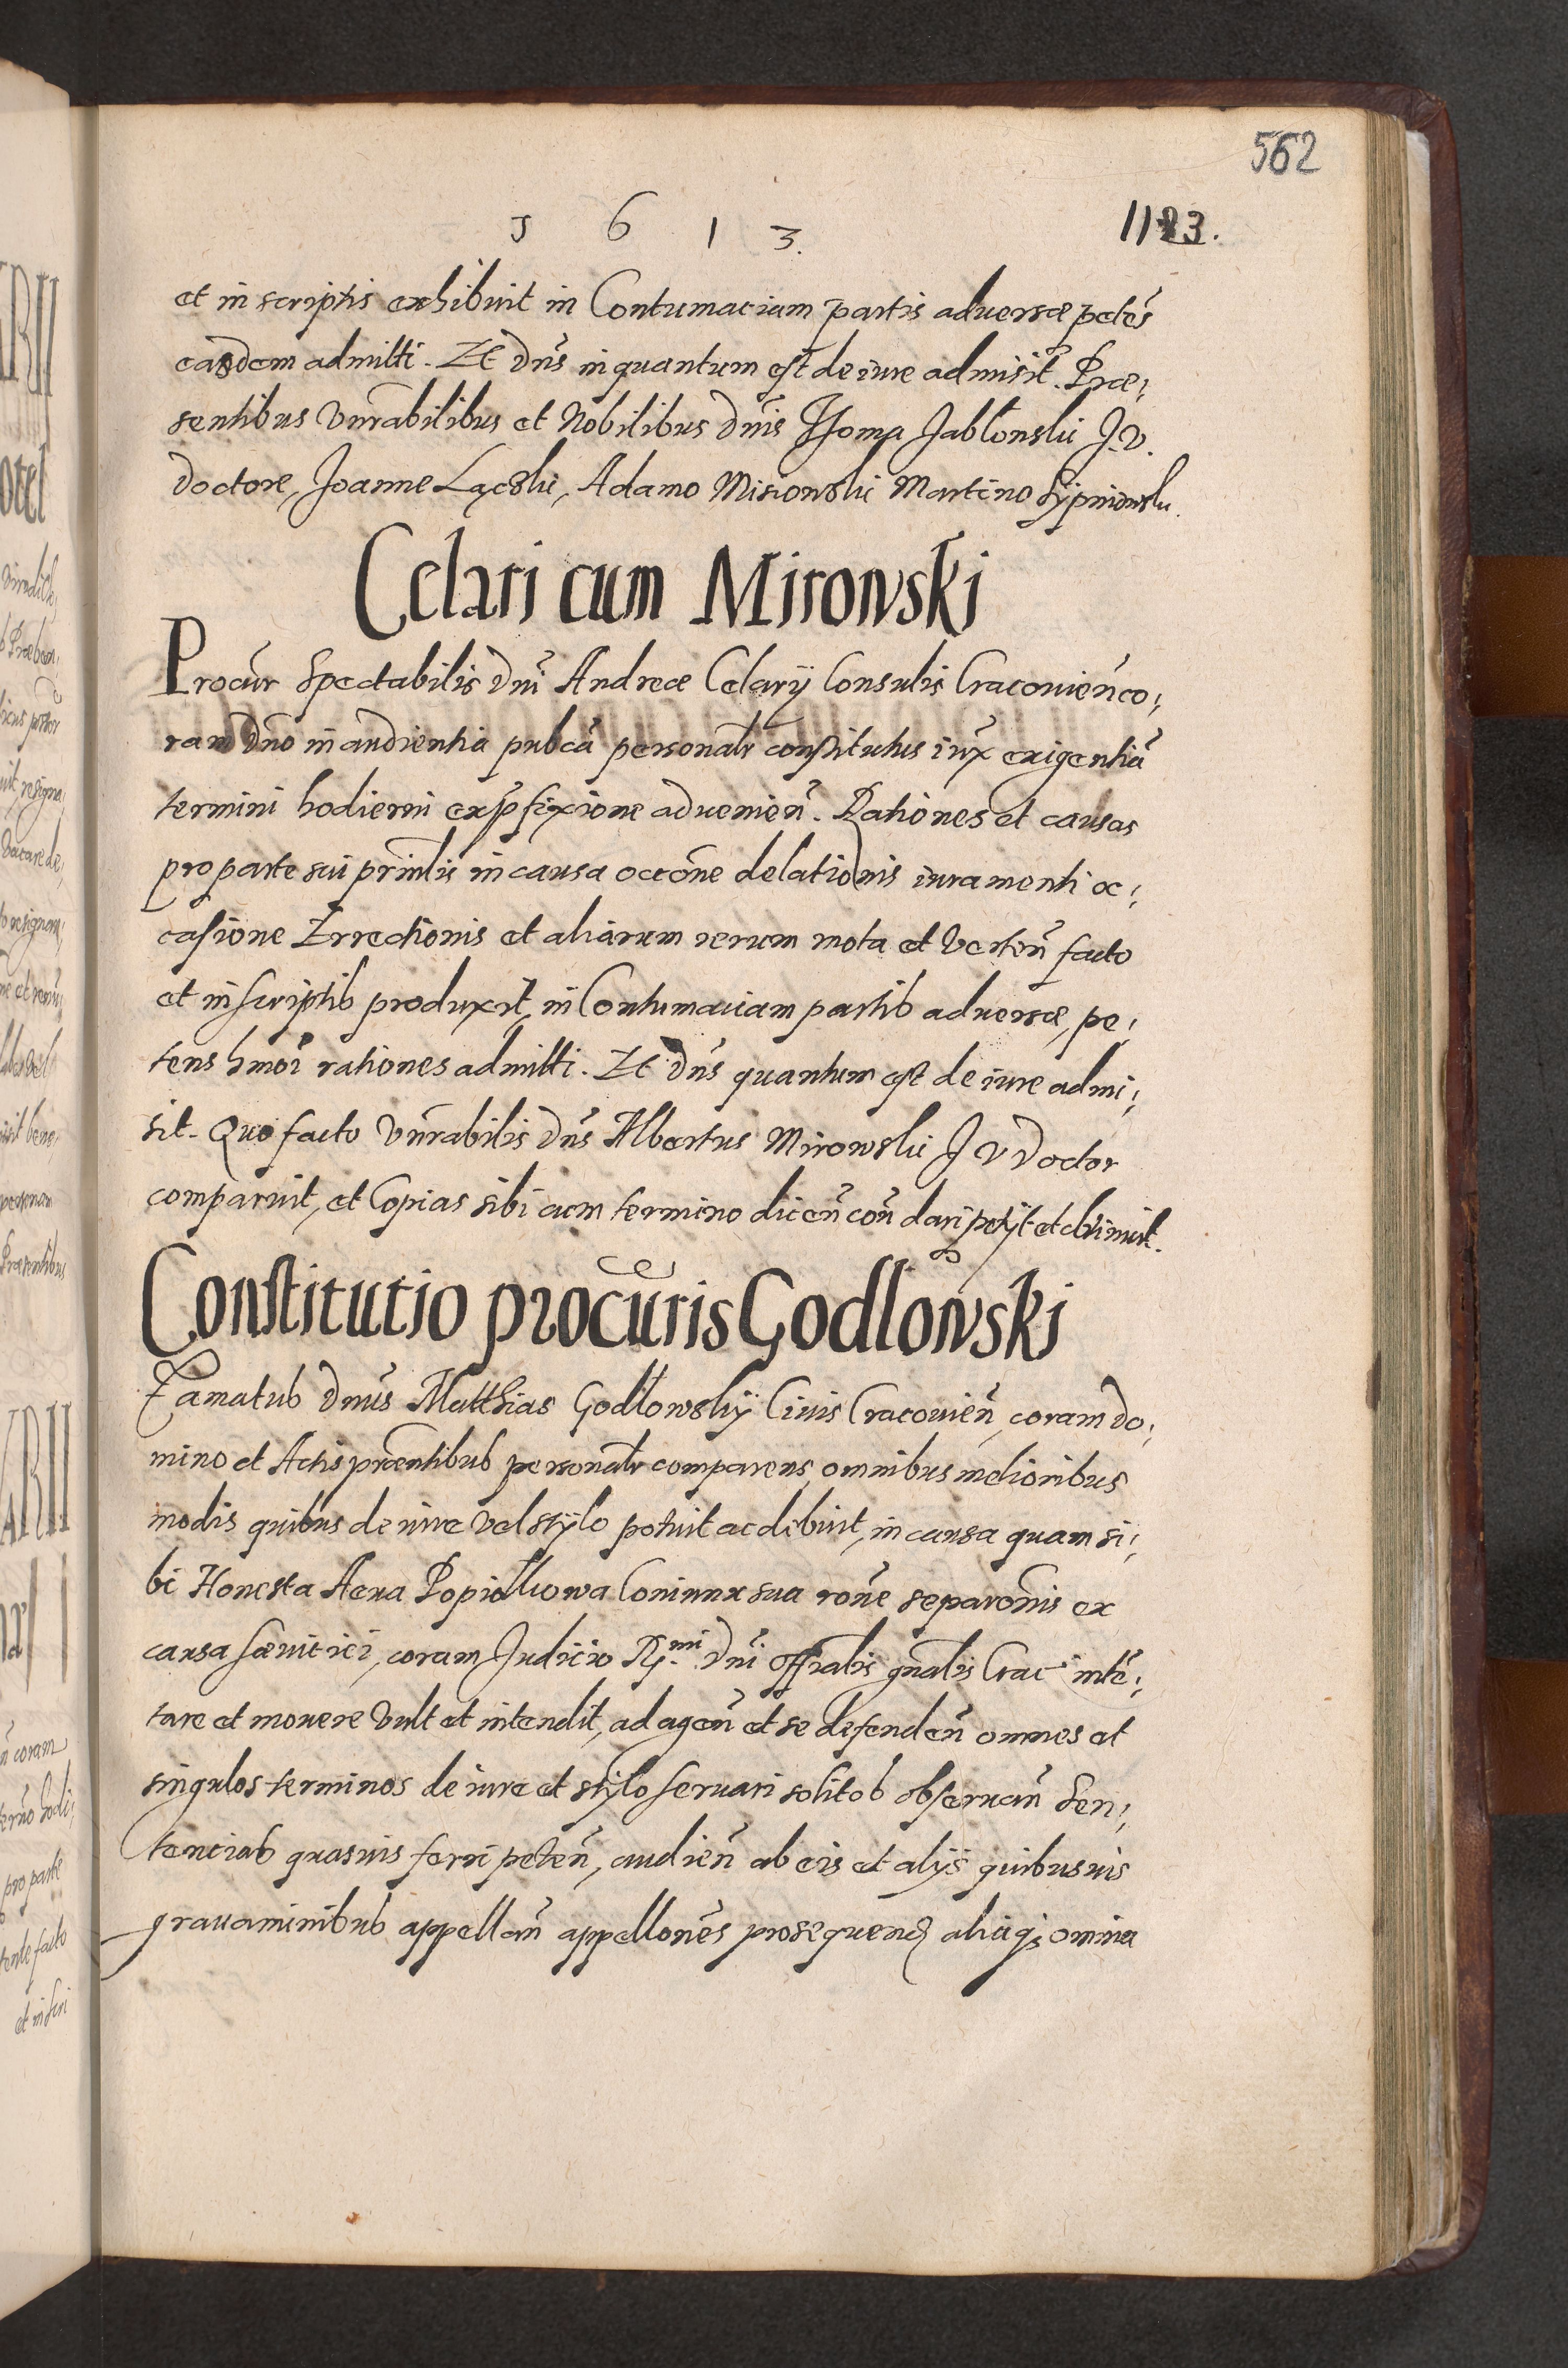 562
1 6 1 3.
1123.
et in scriptis exhibuit in Contumaciam partis aduersæ petẽs
easdem admitti. Et Dñs in quantum est de iure admisit. Præ¡
sentibus Vnrabilibus et Nobilibus Dnis Thoma Jabłonski J. V.
Doctore, Joanne Lącski, Adamo Misiowski Martino Sÿpniowski.
Celari cum Mirowski
Procur̃ Spectabilis Dñi Andreæ Celarÿ Consulis Cracouien̄ co¡
ram Dño in audientia pubcã personalr constitutus iux̃ exigentiã
termini hodierni ex p̃fixione aduenien̄. Rationes et causas
pro parte sui prinlis in causa occõne delationis iuramenti oc¡
casione Errectionis et aliarum rerum mota et Verten̄ facto
et in scriptis produxit, in Contumaciam partis aduersæ, pe¡
tens hmõi rationes admitti. Et Dñs quantum est de iure admi¡
sit. Quo facto Vnrabilis Dñs Albertus Mirowski J V Doctor
comparuit, et Copias sibi cum termino dicen̄ con̄ dari petÿt et obtinuit.
Constitutio procuris Godlowski
Famatus Dnũs Matthias Godłowskÿ Ciuis Cracouien̄, coram Do¡
mino et Actis præntibus personalr comparens, omnibus melioribus
modis quibus de iure vel stÿlo potuit ac debuit, in causa quam si¡
bi Honesta Popiołkowa Coniunx sua rõne separõnis ex
causa sæuitiei, coram Judicio R.mi Dñi Offialis gñalis Crac intẽ¡
tare et mouere Vult et intendit, ad agen̄ et se defenden̄ omnes et
singulos terminos de iure et stÿlo seruari solitos obseruan̄ Sen¡
tencias quasuis ferri peten̄, audien̄ ab eis et alÿs quibusuis
grauaminibus appellan̄ appellones prosequend aliaq; omnia